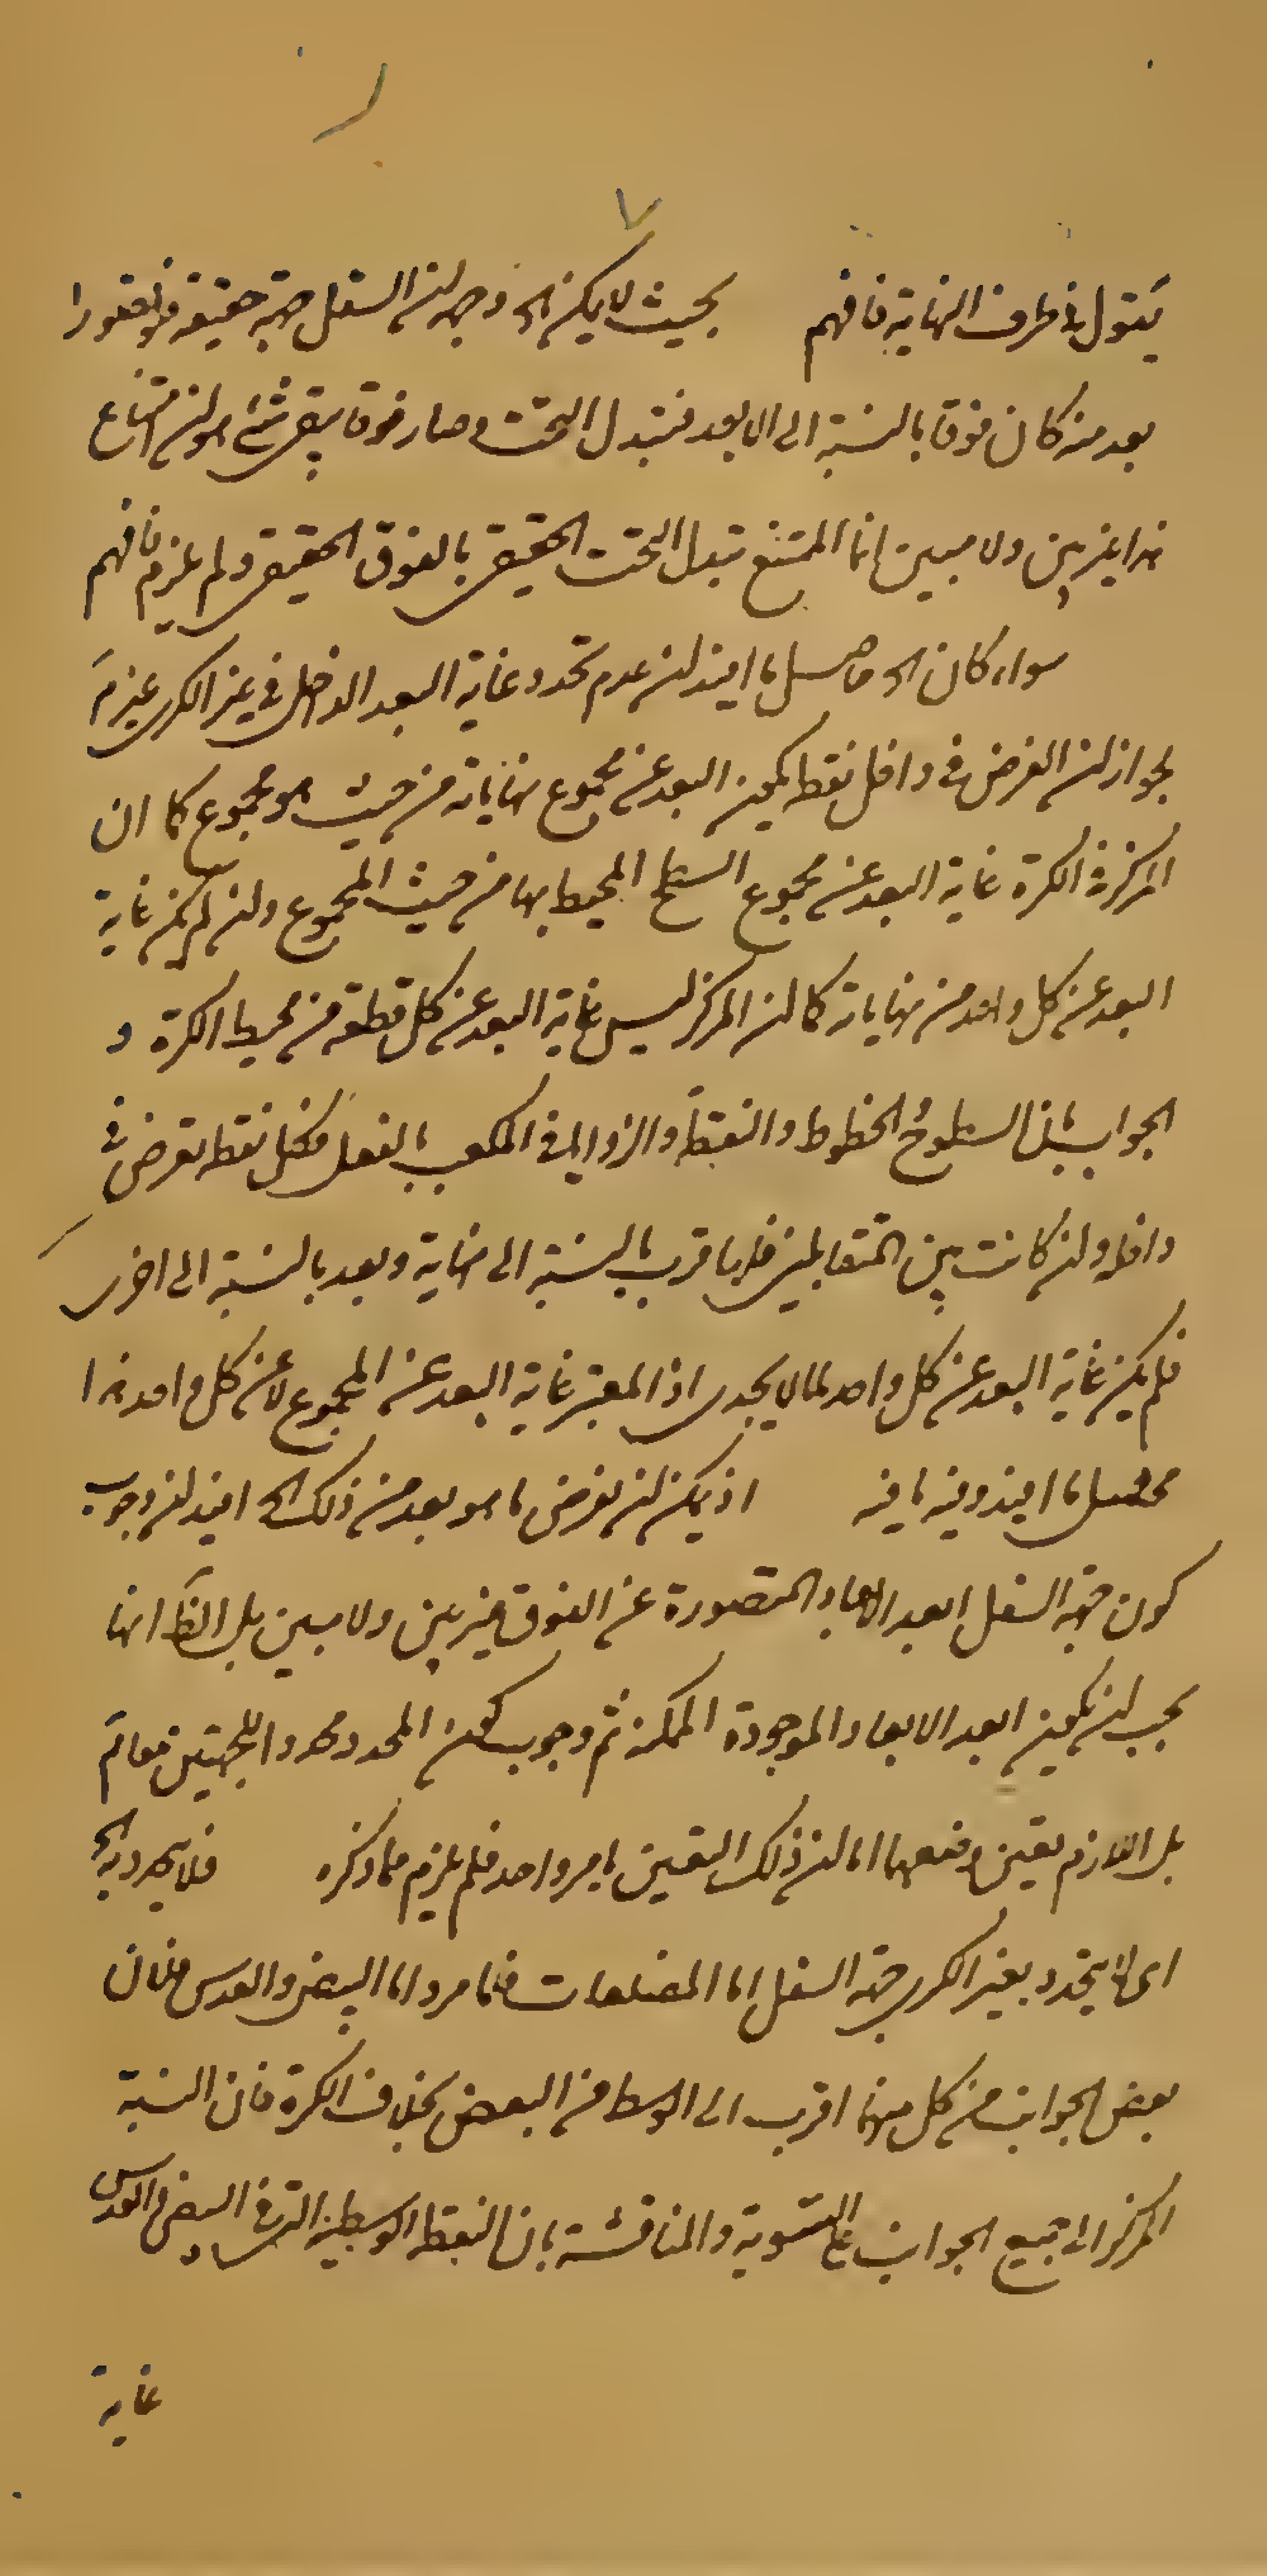 ٧
يتول في طرف النهاية فافهم بحيث لا يمكن الخ وجه لان السفل جهة حقيقة فلو تصور
بعد منه كان فوقا بالنسبة الى الابعد فتبدل التحت وصار فوقا بقى شئ هو لان امتناع
هذا غير بين ولا مبين انما الممتنع تبدل التحت الحقيقى بالفوق الحقيقى ولم يلزم فافهم
سواء كان الخ حاصل ما افيد لان عدم تحدد غاية البعد الداخل في غير الكرى غير مَ
لجواز لان الفرض فى داخل نقطة يكون البعد عن مجموع نهاياته من حيث هو مجموع كما ان
المركز في الكرة غاية البعد عن مجموع السطح المحيط بها من حيث المجموع ولان لم يكن غاية
البعد عن كل واحد من نهاياته كما لان المركز ليس غاية البعد عن كل قطعة من محيط الكرة و
الجواب بان السطوح والخطوط والنقطة والزوايا فى المكعب بالفعل فكل نقطة تفرض فى
داخله ولان كانت بين المتقابلين فلها قرب بالنسبة الى نهاية وبعد بالنسبة الى اخرى
فلم يكن غاية البعد عن كل واحد لما لا يجدى اذ المعتبر غاية البعد عن المجموع لا عن كل واحد هذا
محصل ما افيد وفيه ما فيه اذ يمكن لان يفرض ما هو بعد من ذلك الخ افيد لان وجوب
كون جهة السفل ابعد الابعاد المتصورة عن الفوق غير بين ولا مبين بل الظَ انها
يجب لان يكون ابعد الابعاد الموجودة الممكنة ثم وجوب كون المحدد محددا للجهتين معا مَ
بل اللازم تعين وضعهما اما لان ذلك التعين بامر واحد فلم يلزم مما ذكره فلا يحدد به الخ
اى لا يتحدد بغير الكرى جهة السفل اما المضلعات فلما مر واما البيضى والعدسى فلان
بعض الجوانب من كل منهما اقرب الى الوسط من البعض بخلاف الكرة فان النسبة
المركز الى جميع الجوانب على التسوية والمناقشة بان النقطة الوسطية التى فى البيضى والعدسى
غاية